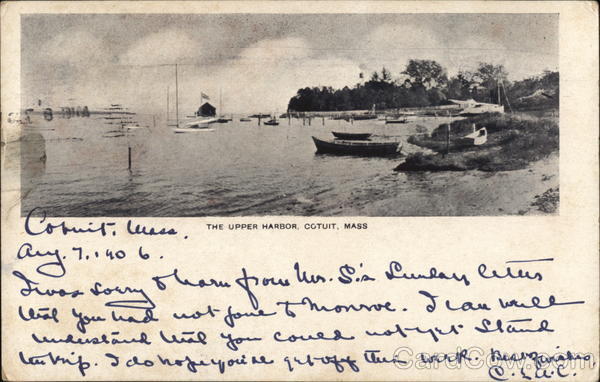 THE UPPER HARBOR, COTUIT, MASS
Cotuit, Mass.
Aug. 7, 1906.
I was sorry to learn from Mr. S.'s Sunday letter
that you had not gone to Monroe. I can well
understand that you could not yet stand
the trip. I do hope you'll get off this week. Best wishes
CardCow.com